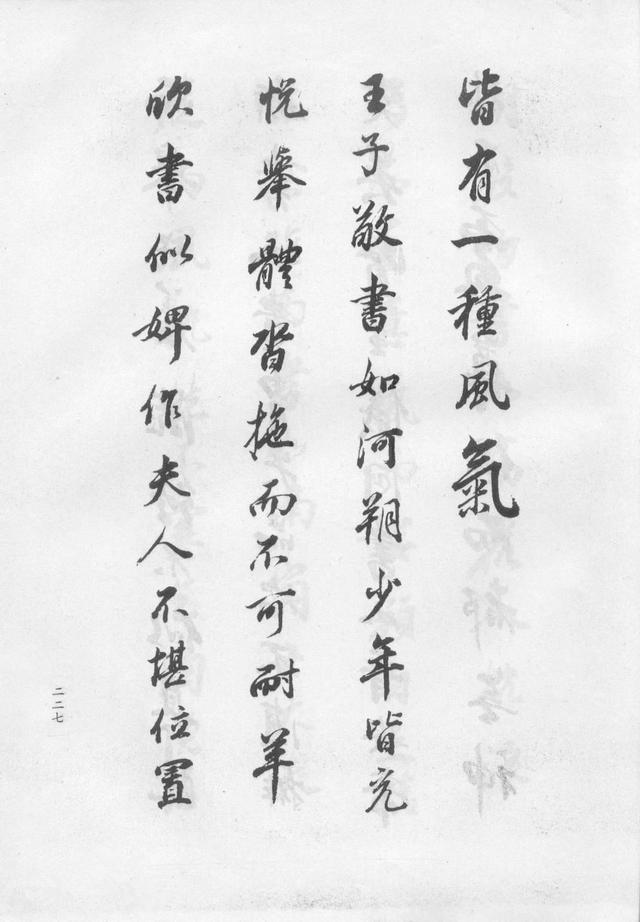 皆有一種風氣
王子敬書如河朔少年皆充
悅舉體沓拖而不可耐羊
欣書似婢作夫人不堪位置
二二七